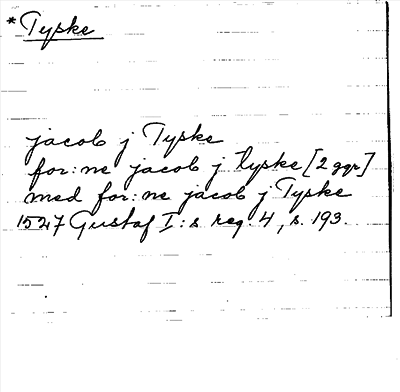 *Tyske
jacob j Tyske
for:ne jacob j tyske [2 ggr]
med for:ne jacob j Tyske
1527 Gustaf I:s reg. 4, s. 193.